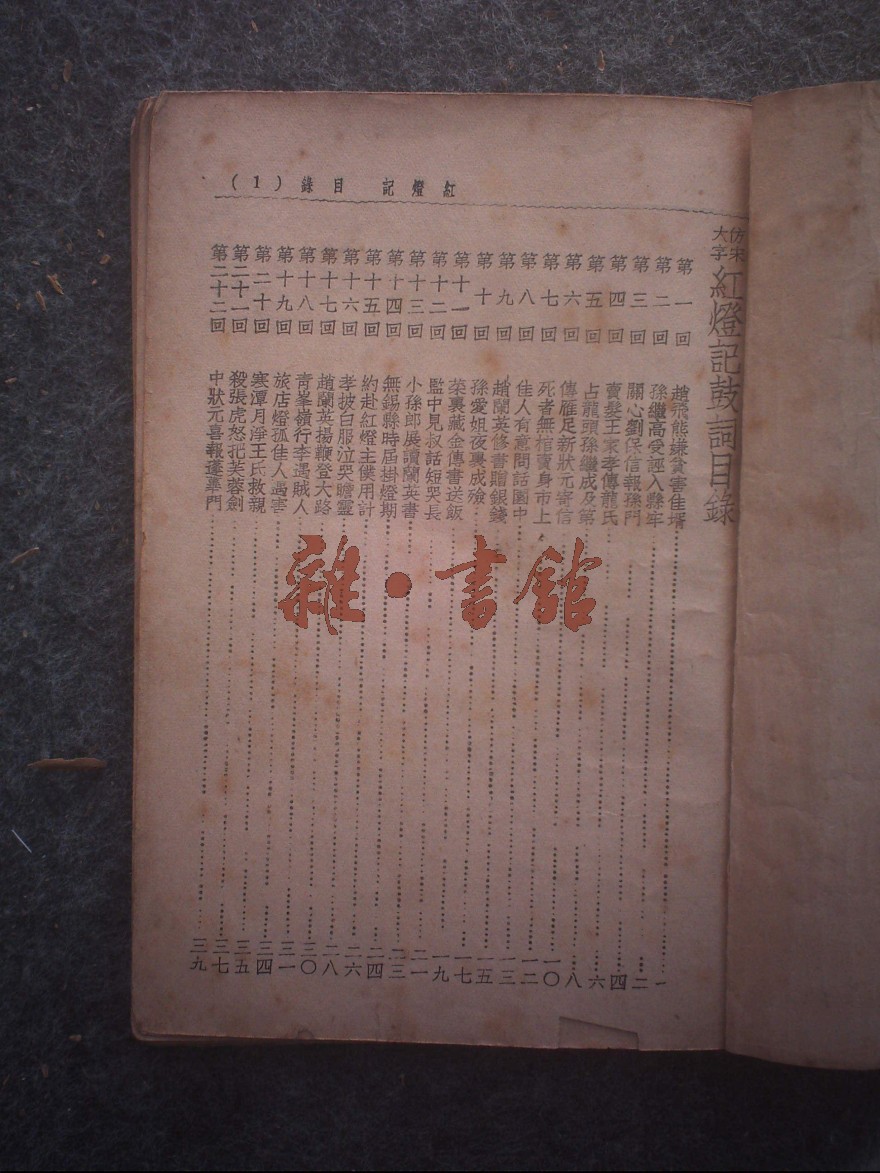 紅燈記 目錄 (1)
仿宋大字 紅燈記鼓詞目錄
第一回 趙飛熊嫌貧害佳壻 一
第二回 孫繼高受誣入縣牢 二
第三回 關心劉保信報孫門 四
第四回 賣髮王家孝傳龍氏 六
第五回 占龍頭孫繼成及第 八
第六回 傳雁足新狀元寄信 一〇
第七回 死者無棺賣身市上 一二
第八回 佳人有意問話園中 一三
第九回 趙蘭英修書贈銀錢 一五
第十回 孫愛姐夜裏成殮 一七
第十一回 菜裏藏金傳書送飯 一九
第十二回 監中見叔話短哭長 二一
第十三回 小孫郎展讀蘭英書 二三
第十四回 無錫縣時屆掛燈期 二四
第十五回 約赴紅燈主僕用計 二六
第十六回 孝披白服泣哭瞻靈 二八
第十七回 趙蘭英揚鞭登大路 三〇
第十八回 青峯嶺行李遇賊人 三一
第十九回 旅店燈孤佳人遇害 三四
第二十回 寒潭月淨王氏救親 三五
第二十一回 殺張虎怒把芙蓉劍 三七
第二十二回 中狀元喜報蓬蓽門 三九
雜·書館